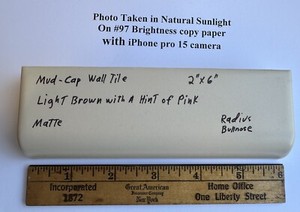 Photo Taken in Natural Sunlight
On #97 Brightness copy paper
with iPhone pro 15 camera
Mud-Cap Wall Tile 2"x6"
Light Brown with A Hint of Pink
Matte
Radius
Bullnose
1 2 3 4 5 6
Incorporated Great American Home Office
1872 New York One Liberty Street